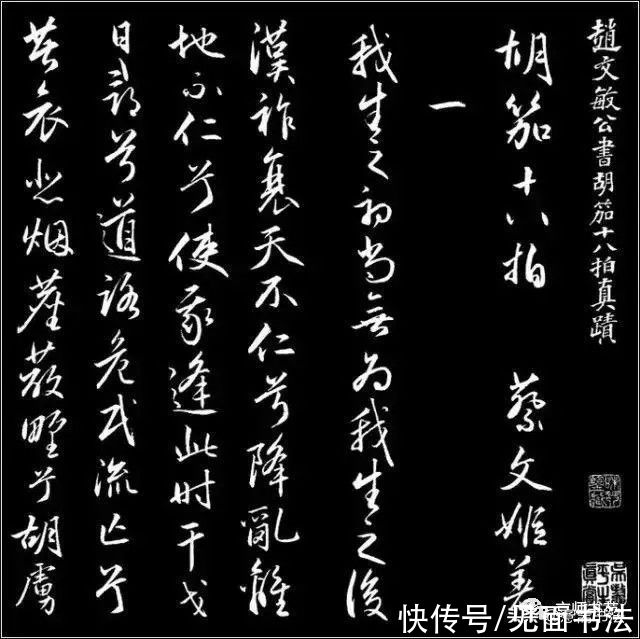 趙文敏公書胡笳十八拍真蹟
胡笳十八拍 蔡文姬
一
我生之初尚無為我生之後
漢祚衰天不仁兮降亂離
地不仁兮使我逢此時干戈
日尋兮道路危民流亡兮
共哀悲烟塵蔽野兮胡虜
快传号/见面书法